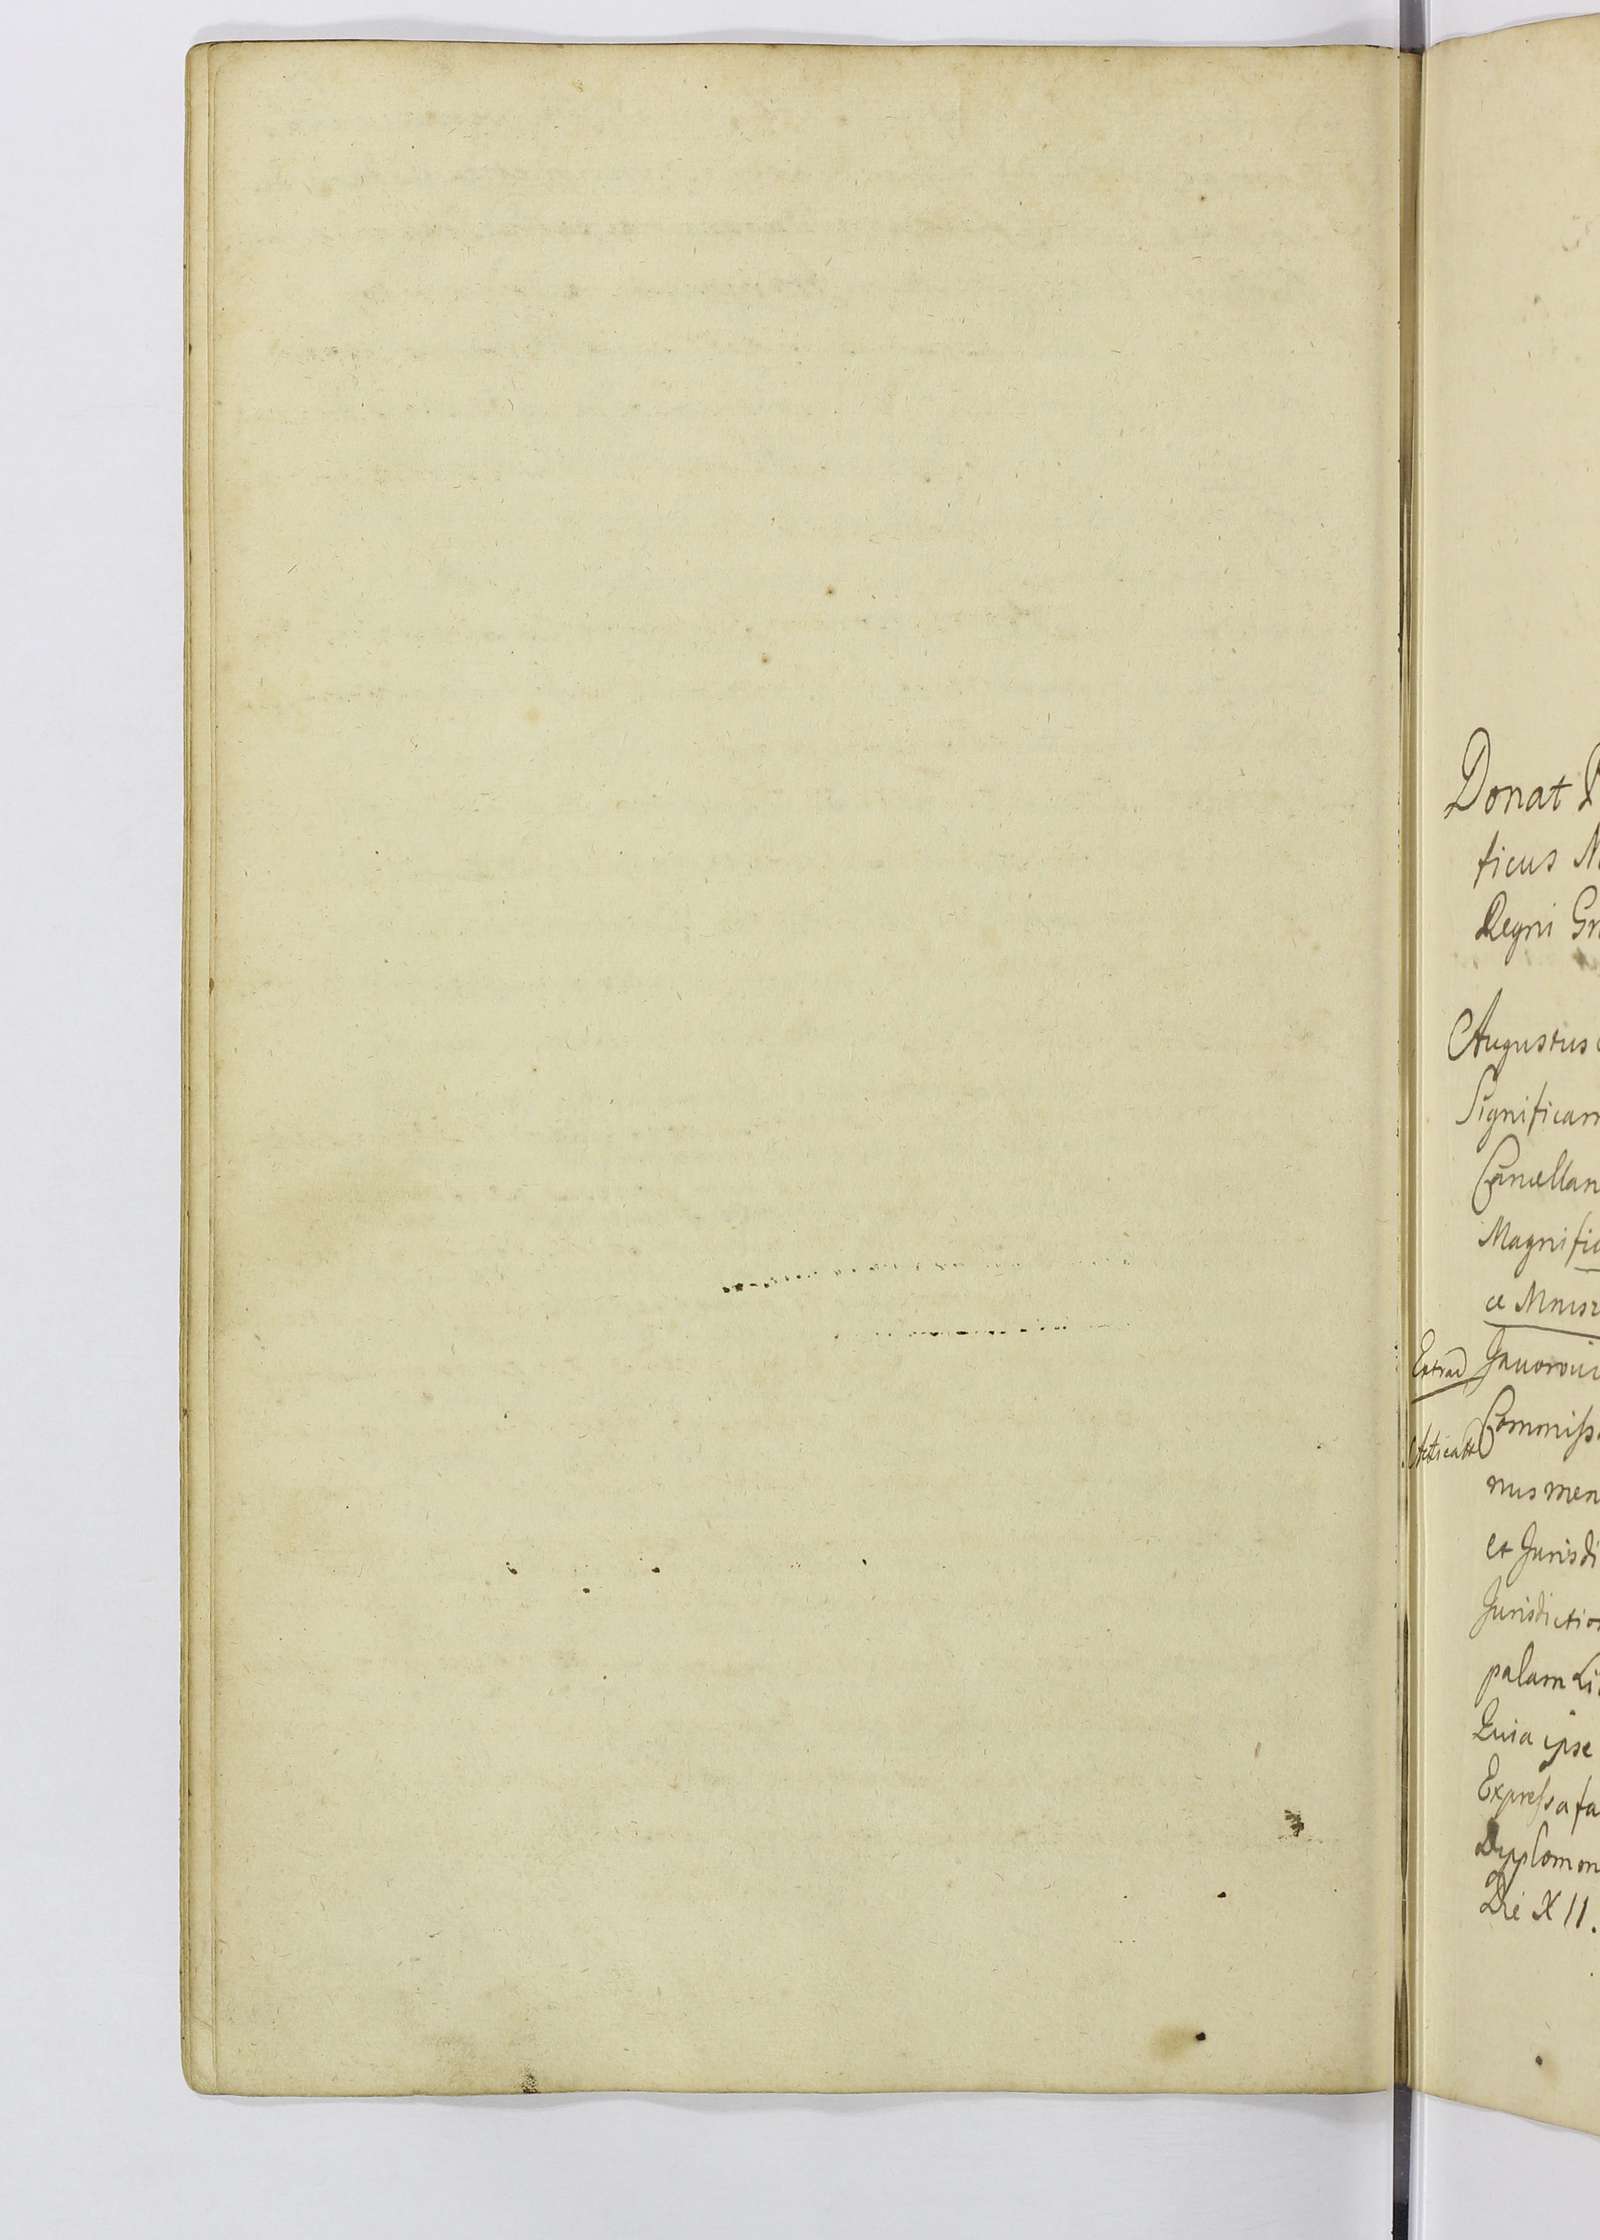 Donat
ticus
Regni
Augustus
Significam
Cancellar
Magnific
ce Mnisz
Extrad
Javorovi
Commiss
nus men
et Jurisdi
Jurisdictio
palam Li
Quia ipse
Expressa fa
Dyplomon
Die XII.